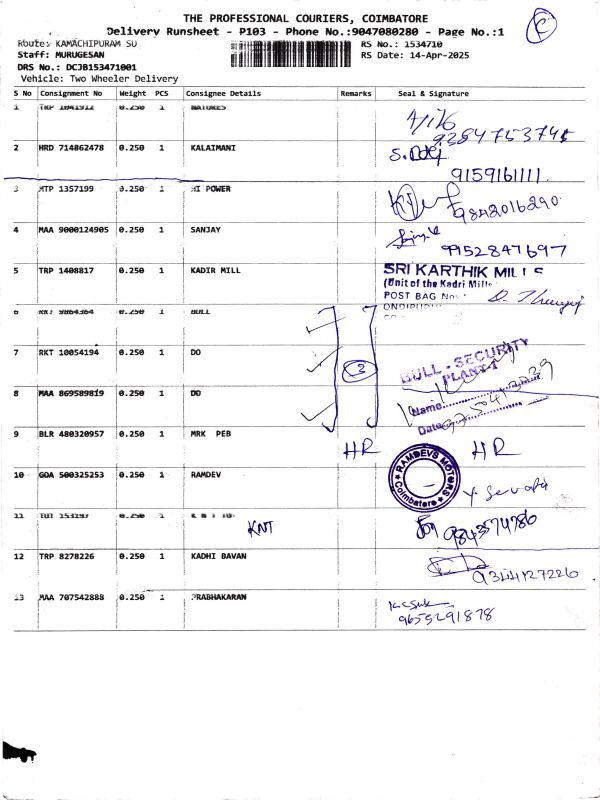 THE PROFESSIONAL COURIERS, COIMBATORE
Delivery Runsheet - P103 - Phone No.:9047080280 - Page No.:1
Route: KAMACHIPURAM SU
RS No.: 1534710
Staff: MURUGESAN
RS Date: 14-Apr-2025
DRS No.: DCJB153471001
Vehicle: Two Wheeler Delivery
S No Consignment No Weight PCS Consignee Details Remarks Seal & Signature
1 TRP 1041912 0.250 1 NATURES
9384753745
2 HRD 714862478 0.250 1 KALAIMANI
9159161111.
3 MTP 1357199 0.250 1 HI POWER
9842016290
4 MAA 9000124905 0.250 1 SANJAY
9952847697
5 TRP 1408817 0.250 1 KADIR MILL
SRI KARTHIK MILLS
(Unit of the Kadri Mills
POST BAG No.
6 RKT 9864364 0.250 1 BULL
7 RKT 10054194 0.250 1 DO
3
BULL - SECURITY
PLANT-1
8 MAA 869589819 0.250 1 DO
Name:
Date:
9 BLR 480320957 0.250 1 MRK PEB HR HR
10 GOA 500325253 0.250 1 RAMDEV
RAMDEVS MOTORS
Coimbatore
11 0.250 1 KNT
12 TRP 8278226 0.250 1 KADHI BAVAN
9344127226
13 MAA 707542888 0.250 1 PRABHAKARAN
9655291878